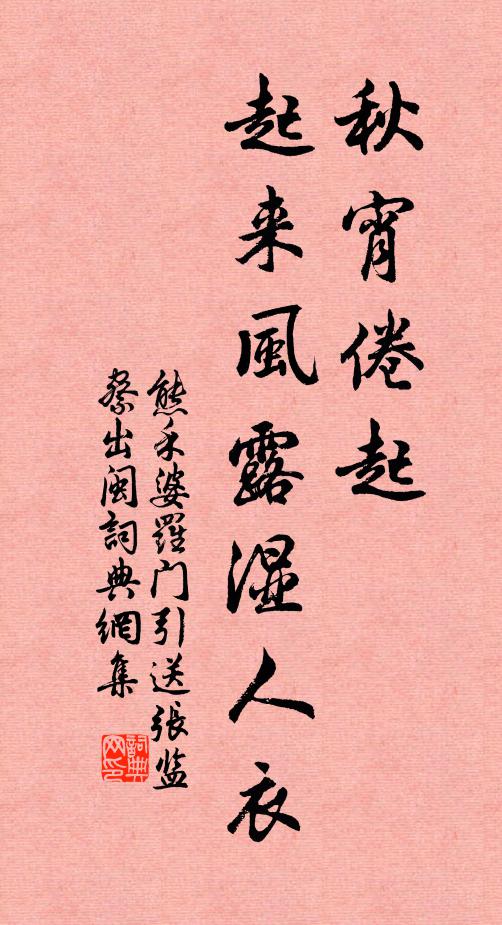 秋宵倦起
起来風露湿人衣
熊禾婆羅门引送張监
察出闽詞典網集
詞典网印